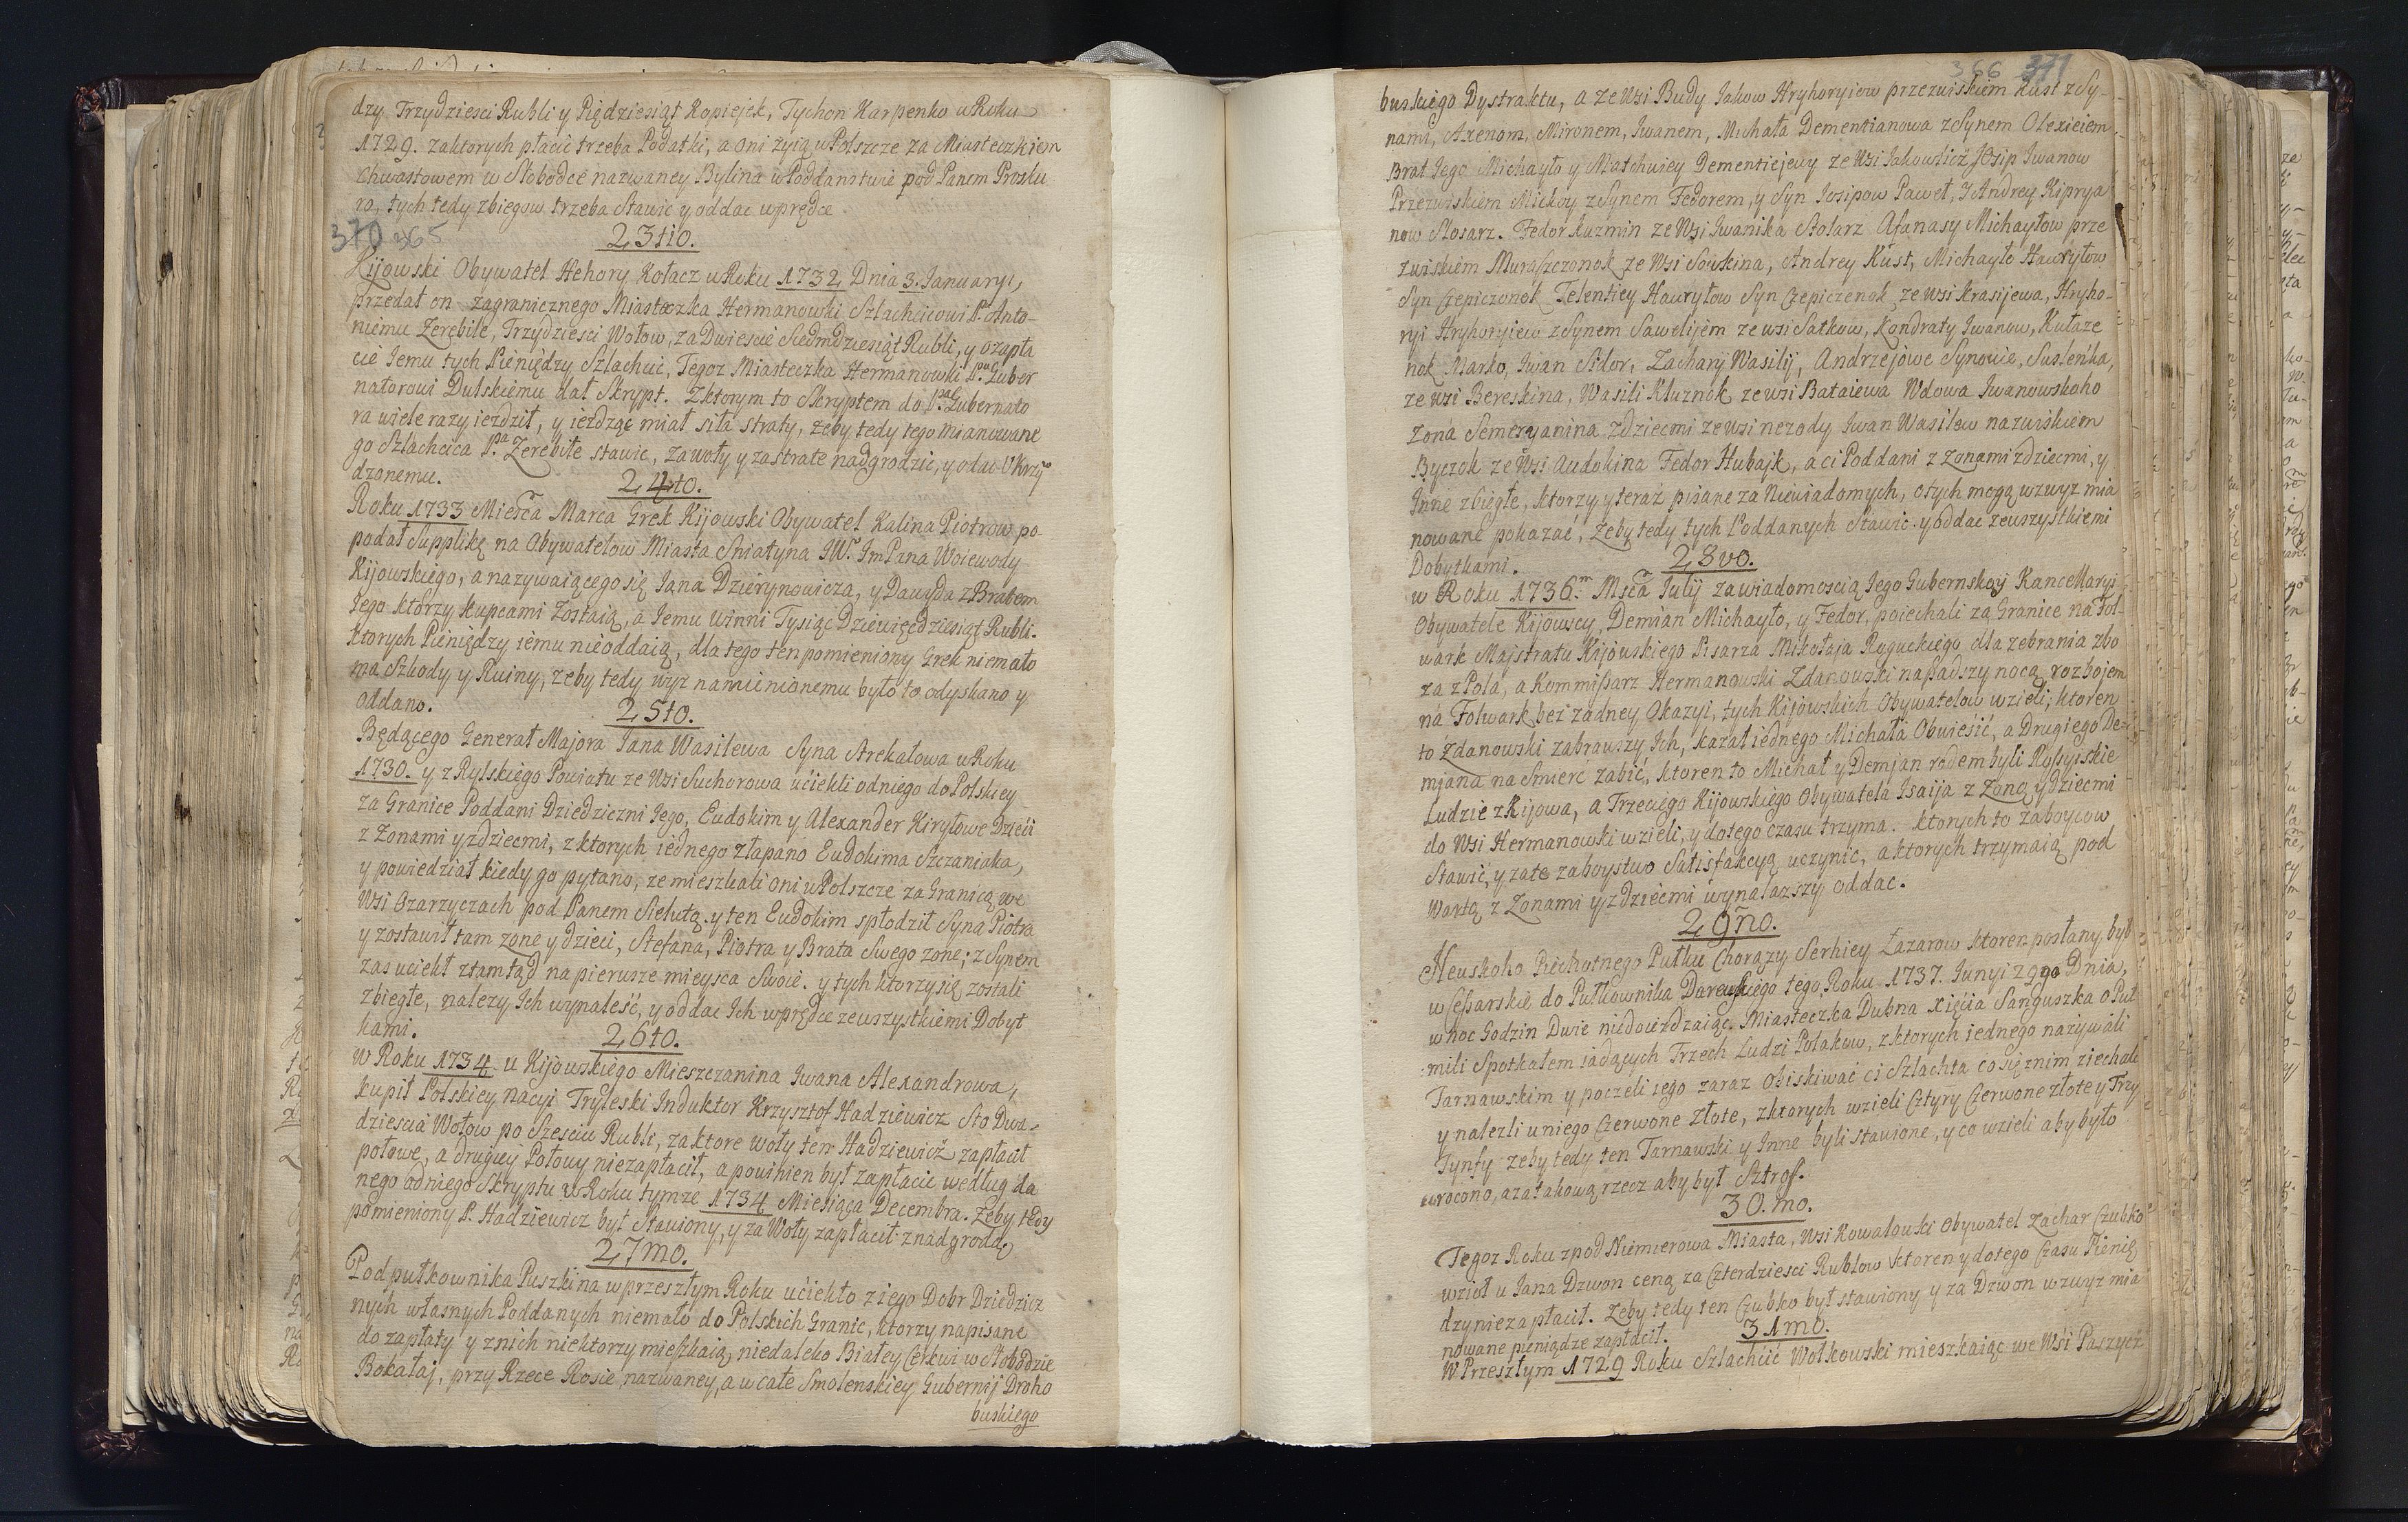 dzy Trzydziesci Rubli y Piędziesiąt Kopiejek, Tychon Karpenko w Roku
1729. zaktorych płacić trzeba Podatki, a oni zyią w Polszcze za Miasteczkiem
Chwastowem w Słobodce nazwaney Bylina w Poddanstwie pod Panem Prosku
ro, tych tedy zbiegow trzeba Stawic y oddac wprędce
370 365
23tio.
Kijowski Obywatel Hehory Kołacz w Roku 1732 Dnia 3. January,
przedał on zagranicznego Miasteczka Hermanowki Szlachcicowi P. Anto-
niemu Zerebile, Trzydziesci Wołow, za Dwiescie Siedmdziesiąt Rubli, y ozapła
cie Iemu tych Pieniędzy Szlachcic, Tegoz Miasteczka Hermanowki P. Guber
natorowi Dulskiemu dał Skrypt. Zktorym to Skryptem do Pa. Gubernato
ra wiele razy iezdził, y iezdząc miał siła straty, zeby tedy tego Mianowane
go Szlachcica Pa. Zerebile stawic, za woły y zastrate nadgrodzic, y odac Ukrzy
dzonemu.
24to.
Roku 1733 Miesca Marca Grek Kijowski Obywatel Kalina Piotrow po-
podał Supplikę na Obywatelow Miasta Sniatyna JW. ImPana Woiewody
Kijowskiego, a nazywaiącego się Iana Dzierynowicza, y Dawyda z Bratem
Iego ktorzy kupcami Zostaią, a Iemu winni Tysiąc Dziewięcdziesiąt Rubli.
ktorych Pieniędzy iemu nieoddaią, dla tego ten pomieniony Grek niemało
ma Szkody y Ruiny, zeby tedy wyz namienionemu było to odyskano y
oddano.
25to.
Będącego Generał Majora Iana Wasilewa Syna Arekałowa w Roku
1730. y z Rylskiego Powiatu ze Wsi Suchorowa ućiekli odniego do Polskiey
za Granice Poddani Dziedziczni Iego, Eudokim y Alexander Kiryłowe Dzieci
z Zonami y zdziecmi, z ktorych iednego złapano Eudokima Szczaniaka,
y powiedział kiedy go pytano, ze mieszkali oni w Polszcze za Granicą we
Wsi Ozarzyczach pod Panem Sielutą. y ten Eudokim spłodził Syna Piotra
y zostawił tam zone y dzieci, Stefana, Piotra y Brata Swego zone; z Synem
zas uciekł ztamtąd na pierusze mieysca Swoie. y tych ktorzy się zostali
zbiegłe, nalezy Ich wynaleść, y oddac Ich wprędce zewszystkiemi Dobyt
kami.
26to.
W Roku 1734 u Kijowskiego Mieszczanina Iwana Alexandrowa,
kupił Polskiey nacyi Tryleski Induktor Krzysztof Hadziewicz Sto Dwa-
dziescia Wołow po Szesciu Rubli, zaktore woły ten Hadziewicz zapłacił
połowe, a drugiey Połowy niezapłacił, a powinien był zapłacic według da
nego odniego Skryptu w Roku tymze 1734 Miesiąca Decembra. Zeby tedy
pomieniony P. Hadziewicz był Stawiony, y za Woły zapłacił z nadgrodą
27mo.
Podpułkownika Puszkina w przeszłym Roku ućiekło z iego Dobr Dziedzicz
nych własnych Poddanych niemało do Polskich Granic, ktorzy napisane
do zapłaty y znich niektorzy mieszkaią niedaleko Białey Cerkwi w Słobodzie
Bokałaj, przy Rzece Rosie nazwaney, a w cale Smolenskiey Gubernij Droho
buskiego
366 371
buskiego Dystraktu, a ze Wsi Budy Iakow Hryhoryiew przezwiskiem Kust z Sy-
nami, Axenom, Mironem, Iwanem, Michała Dementianowa z Synem Olexieiem
Brat Iego Michayło y Matchwiey Dementiejewy ze Wsi Iakowlicz, Josip Iwanow
Przezwiskiem Mickoy z Synem Fedorem, y Syn Iosipow Paweł, I Andrey Kiprya
now Slosarz. Fedor Kuzmin ze Wsi Iwanika Stolarz Afanasy Michayłow prze
zwiskiem Muraszczonok ze Wsi Sowkina, Andrey Kust, Michayło Hawryłow
Syn Czepiczonok Telentiey Hawryłow Syn Czepiczenok ze wsi Krasijewa, Hryho-
ryi Hryhoryiew z Synem Sawelijem ze wsi Satkow, Kondraty Iwanow, Kułaze
nok Marko, Iwan Sidor, Zachary Wasilij, Andrzejowe Synowie, Suslenka,
ze wsi Bereskina, Wasili Kluznok ze wsi Bataiewa Wdowa Iwanowskoho
zona Semeryanina zdziecmi ze wsi nezody Iwan Wasilew nazwiskiem
Byczok ze Wsi Audokina Fedor Hubajk, a ci Poddani z Zonami zdziecmi, y
Inne zbiegłe, ktorzy y teraz pisane za Niewiadomych, otych mogą wzwyz mia
nowane pokazać, zeby tedy tych Poddanych Stawic y oddac zewszystkiemi
Dobytkami.
28vo.
w Roku 1736. Msca Iulij zawiadomoscią Iego Gubernskoy Kancellaryi
Obywatele Kijowscy, Demian Michayło, y Fedor, poiechali za Granice na Fol-
wark Majstratu Kijowskiego Pisarza Mikołaja Roguckiego dla zebrania zbo
za z Pola, a Kommissarz Hermanowski Zdanowski napadszy nocą rozbojem
na Folwark bez zadney Okazyi, tych Kijowskich Obywatelow wzieli, ktoren
to Zdanowski zabrawszy Ich, kazał iednego Michała Obwiesić, a Drugiego De-
miana na Smierć zabić, ktoren to Michał y Demjan rodem byli Rossyiskie
Ludzie z Kijowa, a Trzeciego Kijowskiego Obywatela Isaija z Zoną y dziecmi
do Wsi Hermanowki wzieli, y dotego czasu trzyma. ktorych to zaboycow
Stawić, y zate zaboystwo Satisfakcyą uczynic, a ktorych trzymaią pod
Wartą z Zonami y zdziećmi wynalazszy oddac.
29no.
Newskoho Piechotnego Pułku Chorązy Serhiey Łazarow ktoren posłany był
w Cesarskie do Pułkownika Darewskiego tego Roku 1737. Iunyi 29go Dnia,
w noc Godzin Dwie niedoiezdzaiąc Miasteczka Dubna Xięcia Sanguszka o Puł
mili Spotkałem iadących Trzech Ludzi Polakow, z ktorych iednego nazywali
Tarnawskim y poczeli iego zaraz obiskiwać ci Szlachta co się znim ziechali
y nalezli uniego Czerwone złote, zktorych wzieli Cztyry Czerwone złote y Trzy
Tynfy zeby tedy ten Tarnawski y Inne byli stawione, y co wzieli aby było
wrocono, a zatakową rzecz aby był Sztrof.
30.mo.
Tegoz Roku zpod Niemierowa Miasta, Wsi Kowalowki Obywatel Zachar Czubko
wzioł u Iana Dzwon ceną za Czterdziesci Rublow ktoren y dotego Czasu Pienię
dzy niezapłacił. Zeby tedy ten Czubko był stawiony y za Dzwon wzwyz mia
nowane pieniądze zapłacił.
31mo.
W Przeszłym 1729 Roku Szlachcić Wołkowski mieszkaiąc we Wsi Paszycz